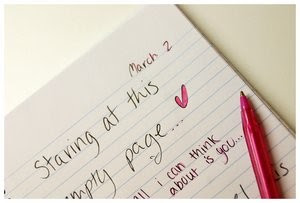 March 2
Staring at this
empty page...
all i can think
about is you...